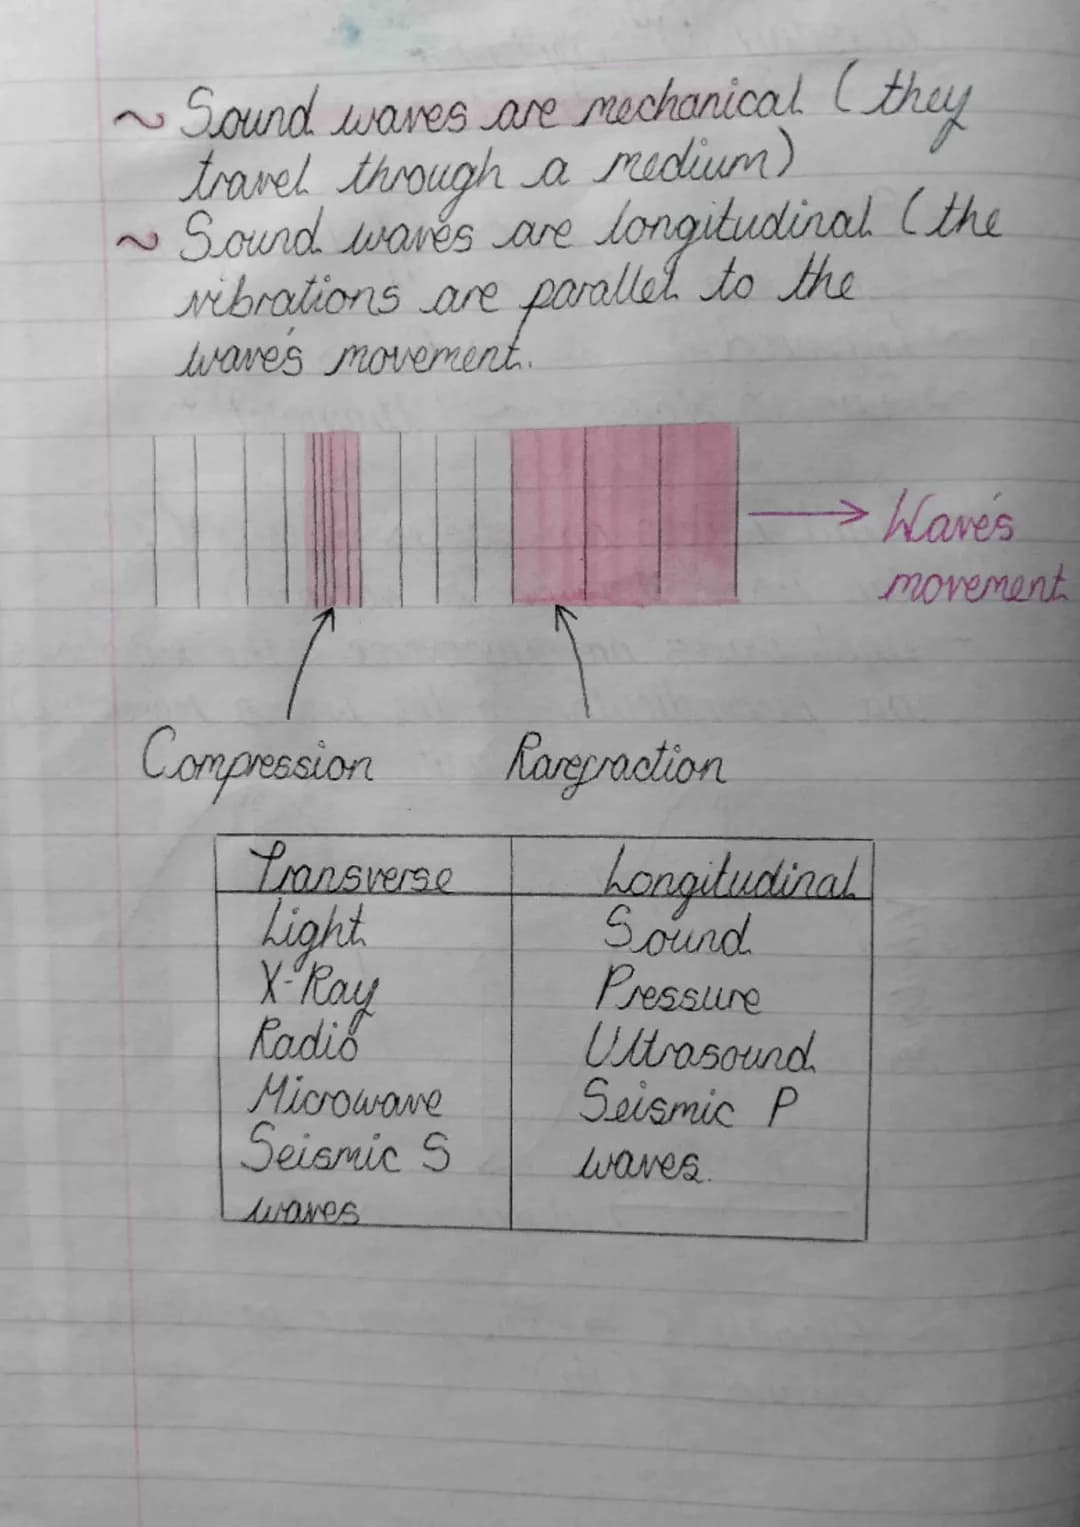 ~ Sound waves are mechanical (they
travel through a medium)
~ Sound waves are longitudinal (the
vibrations are parallel to the
wave's movement.
Wave's
movement
Compression
Rarefraction
Transverse
Longitudinal
Light
Sound
X-Ray
Pressure
Radio
Ultrasound
Microwave
Seismic P
Seismic S
waves.
waves